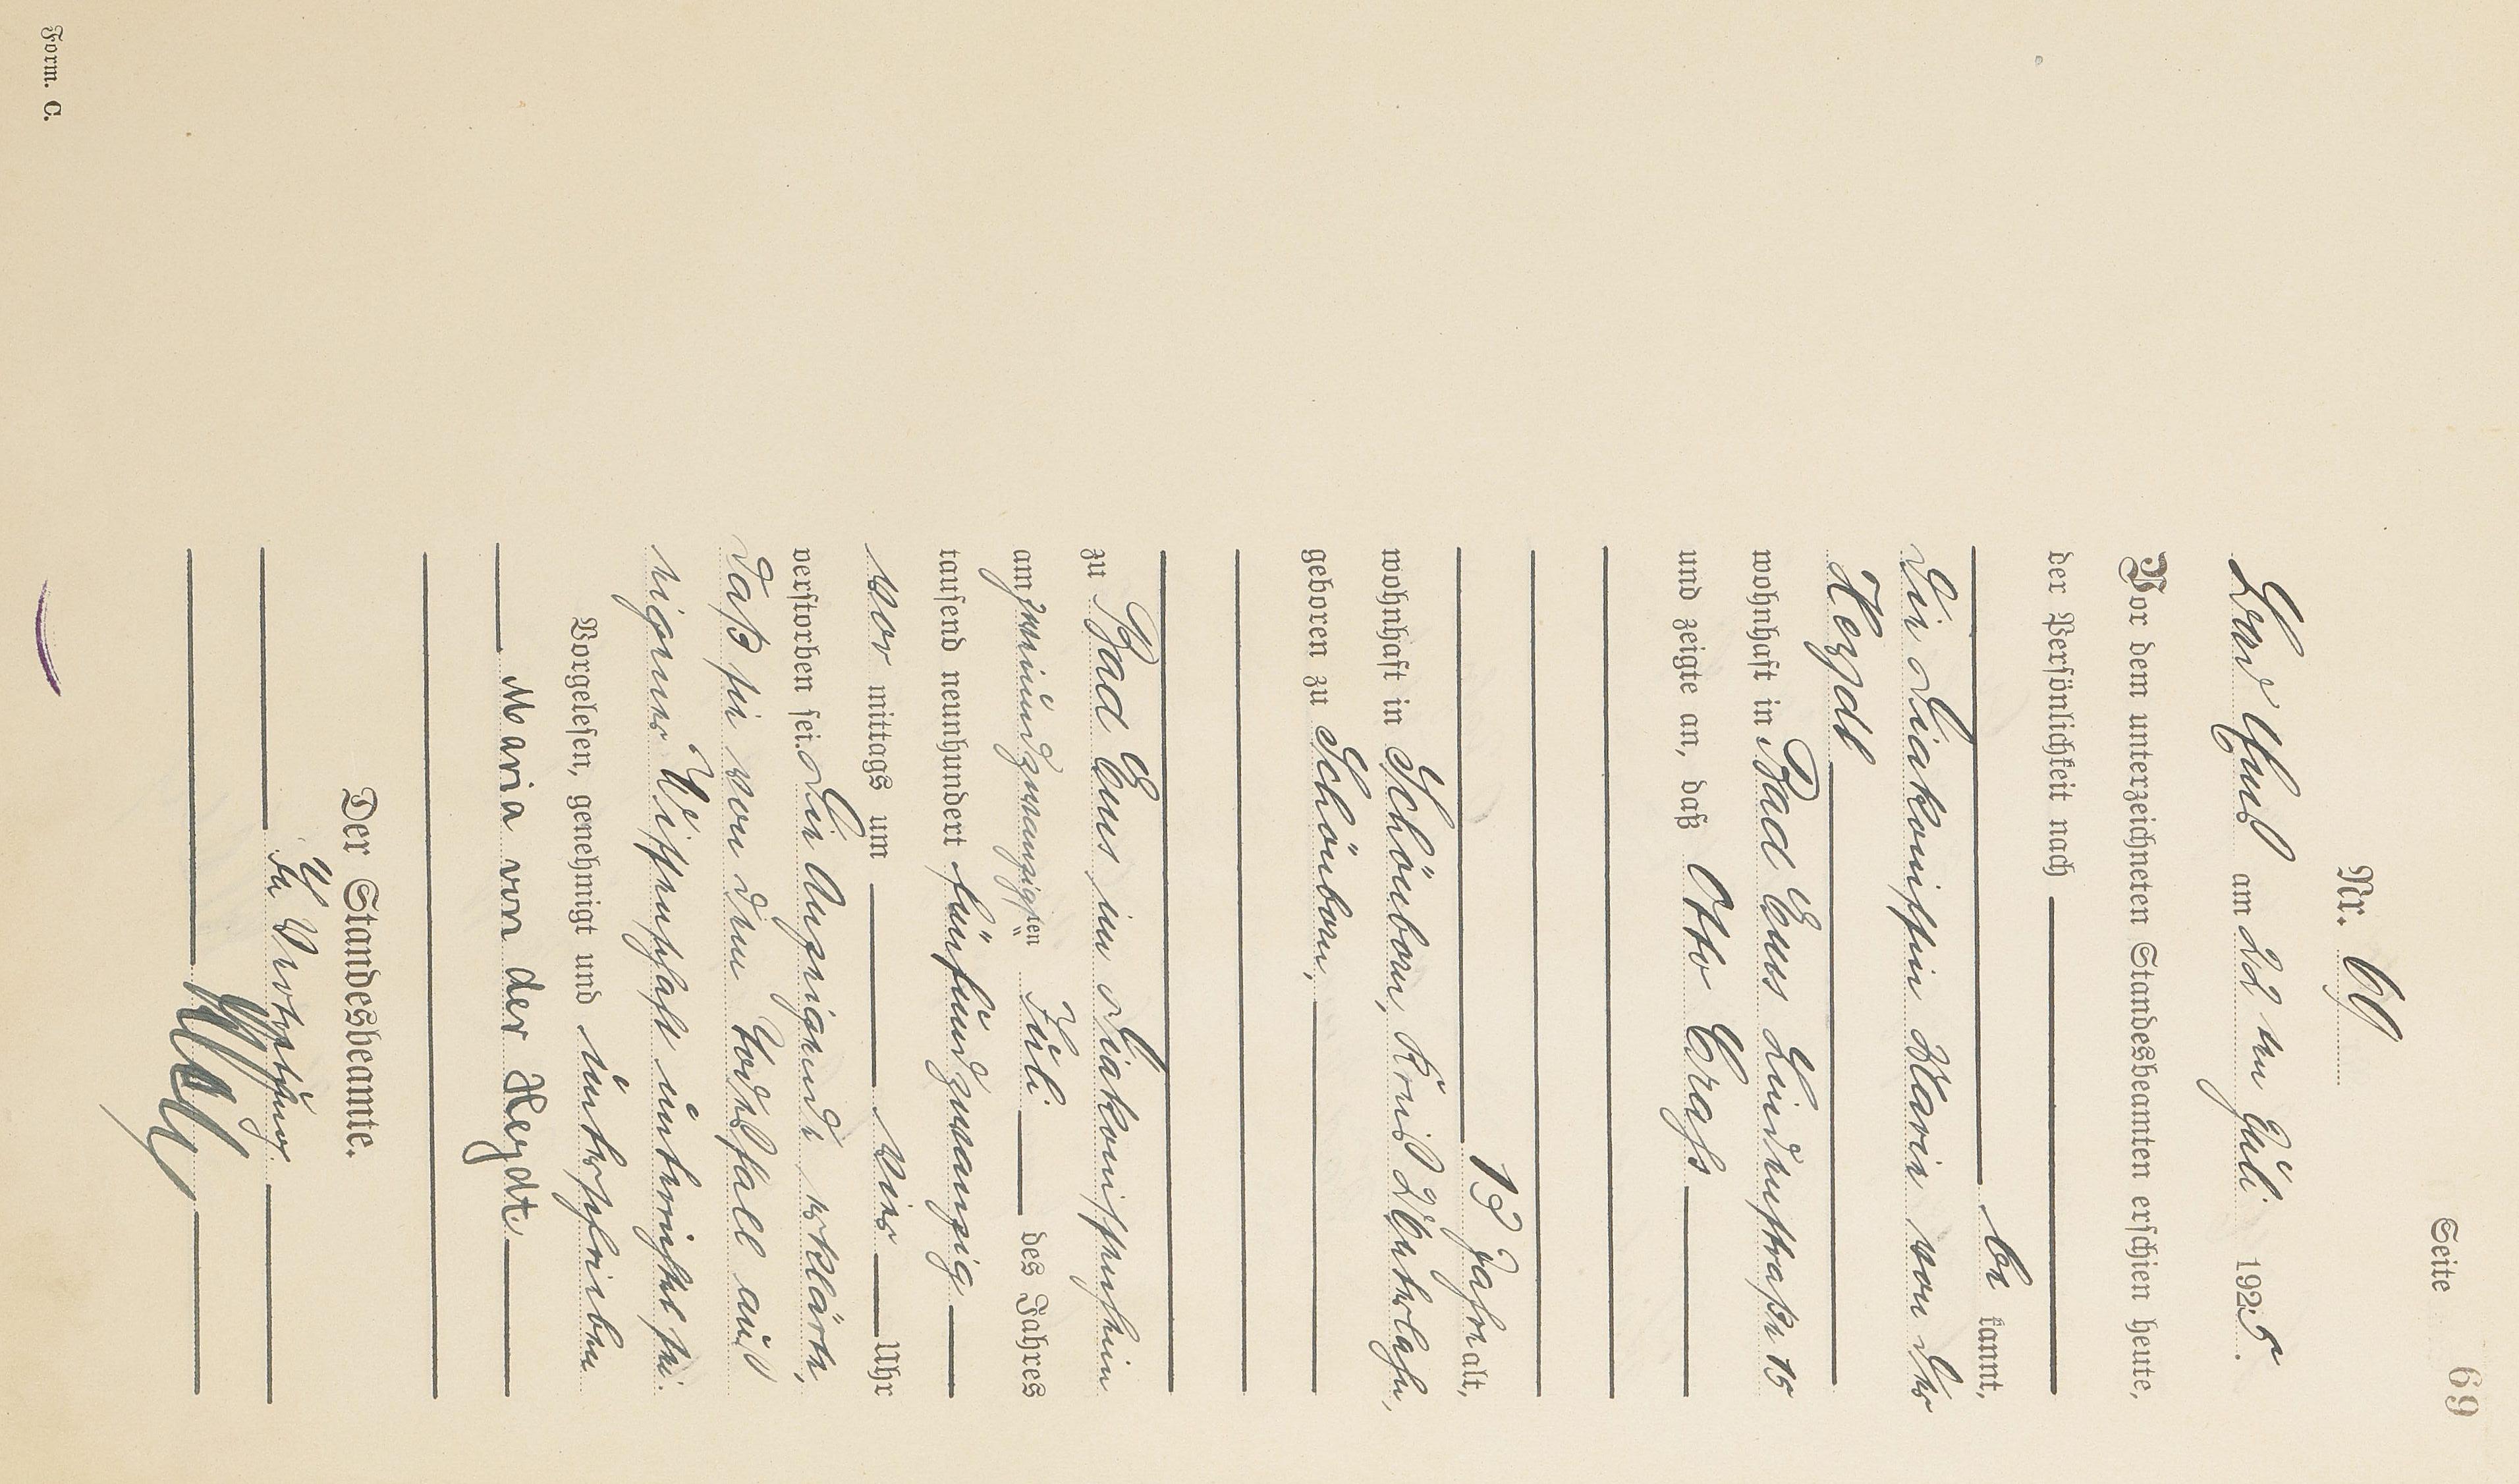 Seite 69
Nr. 69
Bad Ems am 22 ten Juli 1925.
Vor dem unterzeichneten Standesbeamten erschien heute,
der Persönlichkeit nach
be kannt,
die Diakonissin Marie von der
Heydt
wohnhaft in Bad Ems Lindenstraße 15
und zeigte an, daß Otto Crass
13 Jahre alt,
wohnhaft in Schönborn, Kreis Unterlahn,
geboren zu Schönborn,
zu Bad Ems im Diakonissenheim
am zweiundzwanzigsten Juli des Jahres
tausend neunhundert fünfundzwanzig
vor mittags um vier Uhr
verstorben sei. Die Anzeigende erklärte,
daß sie von dem Todesfall aus
eigener Wissenschaft unterrichtet sei.
Vorgelesen, genehmigt und unterschrieben
Maria von der Heydt.
Der Standesbeamte.
In Vertretung.
Form. C.